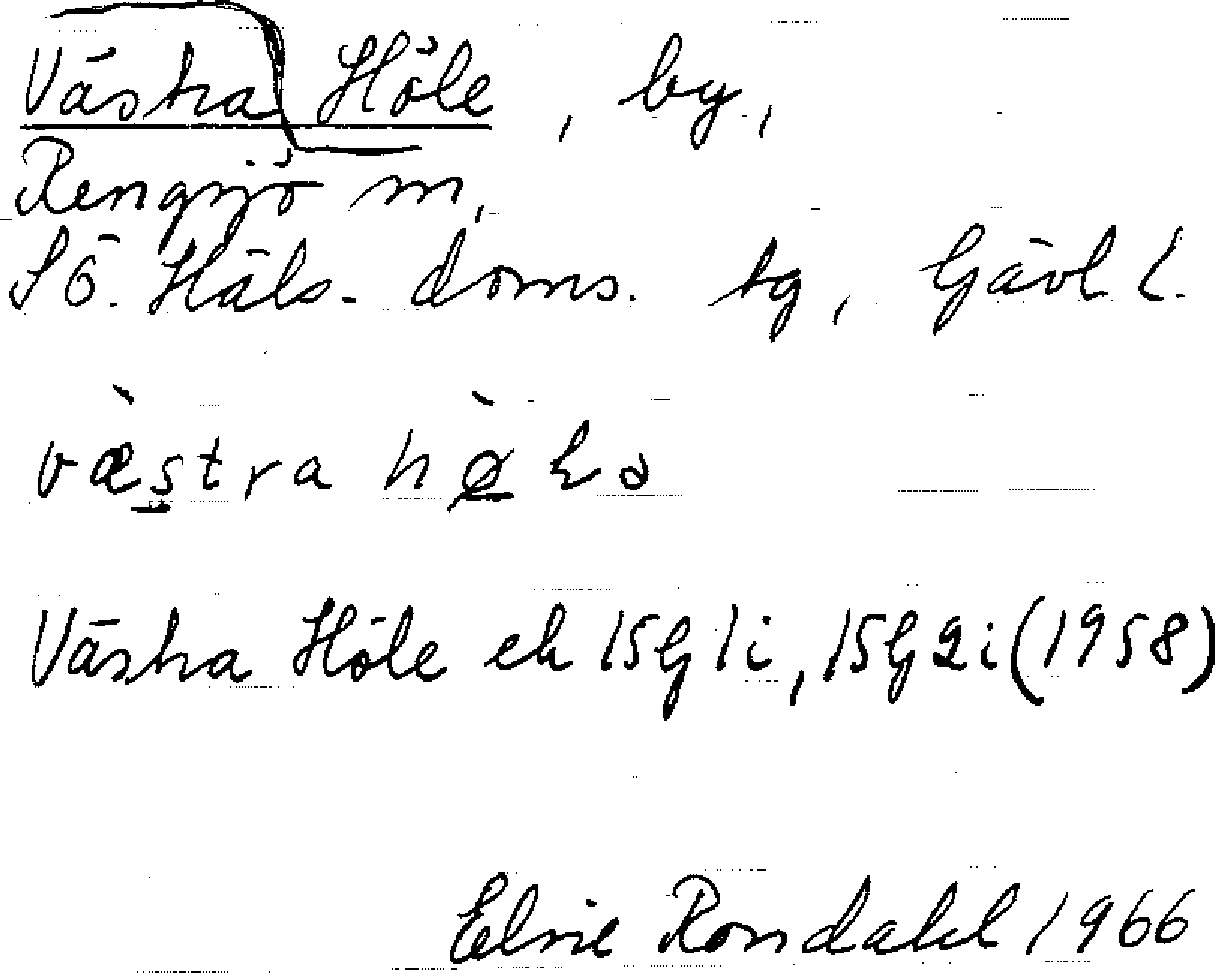 Västra Höle, by,
Rengsjö sn,
SÖ. Häls. doms. tg, Gävl. l.
væstra hø
Västra Höle ek 15G 1i, 15G 2i (1958)
Elsie Rondahl 1966